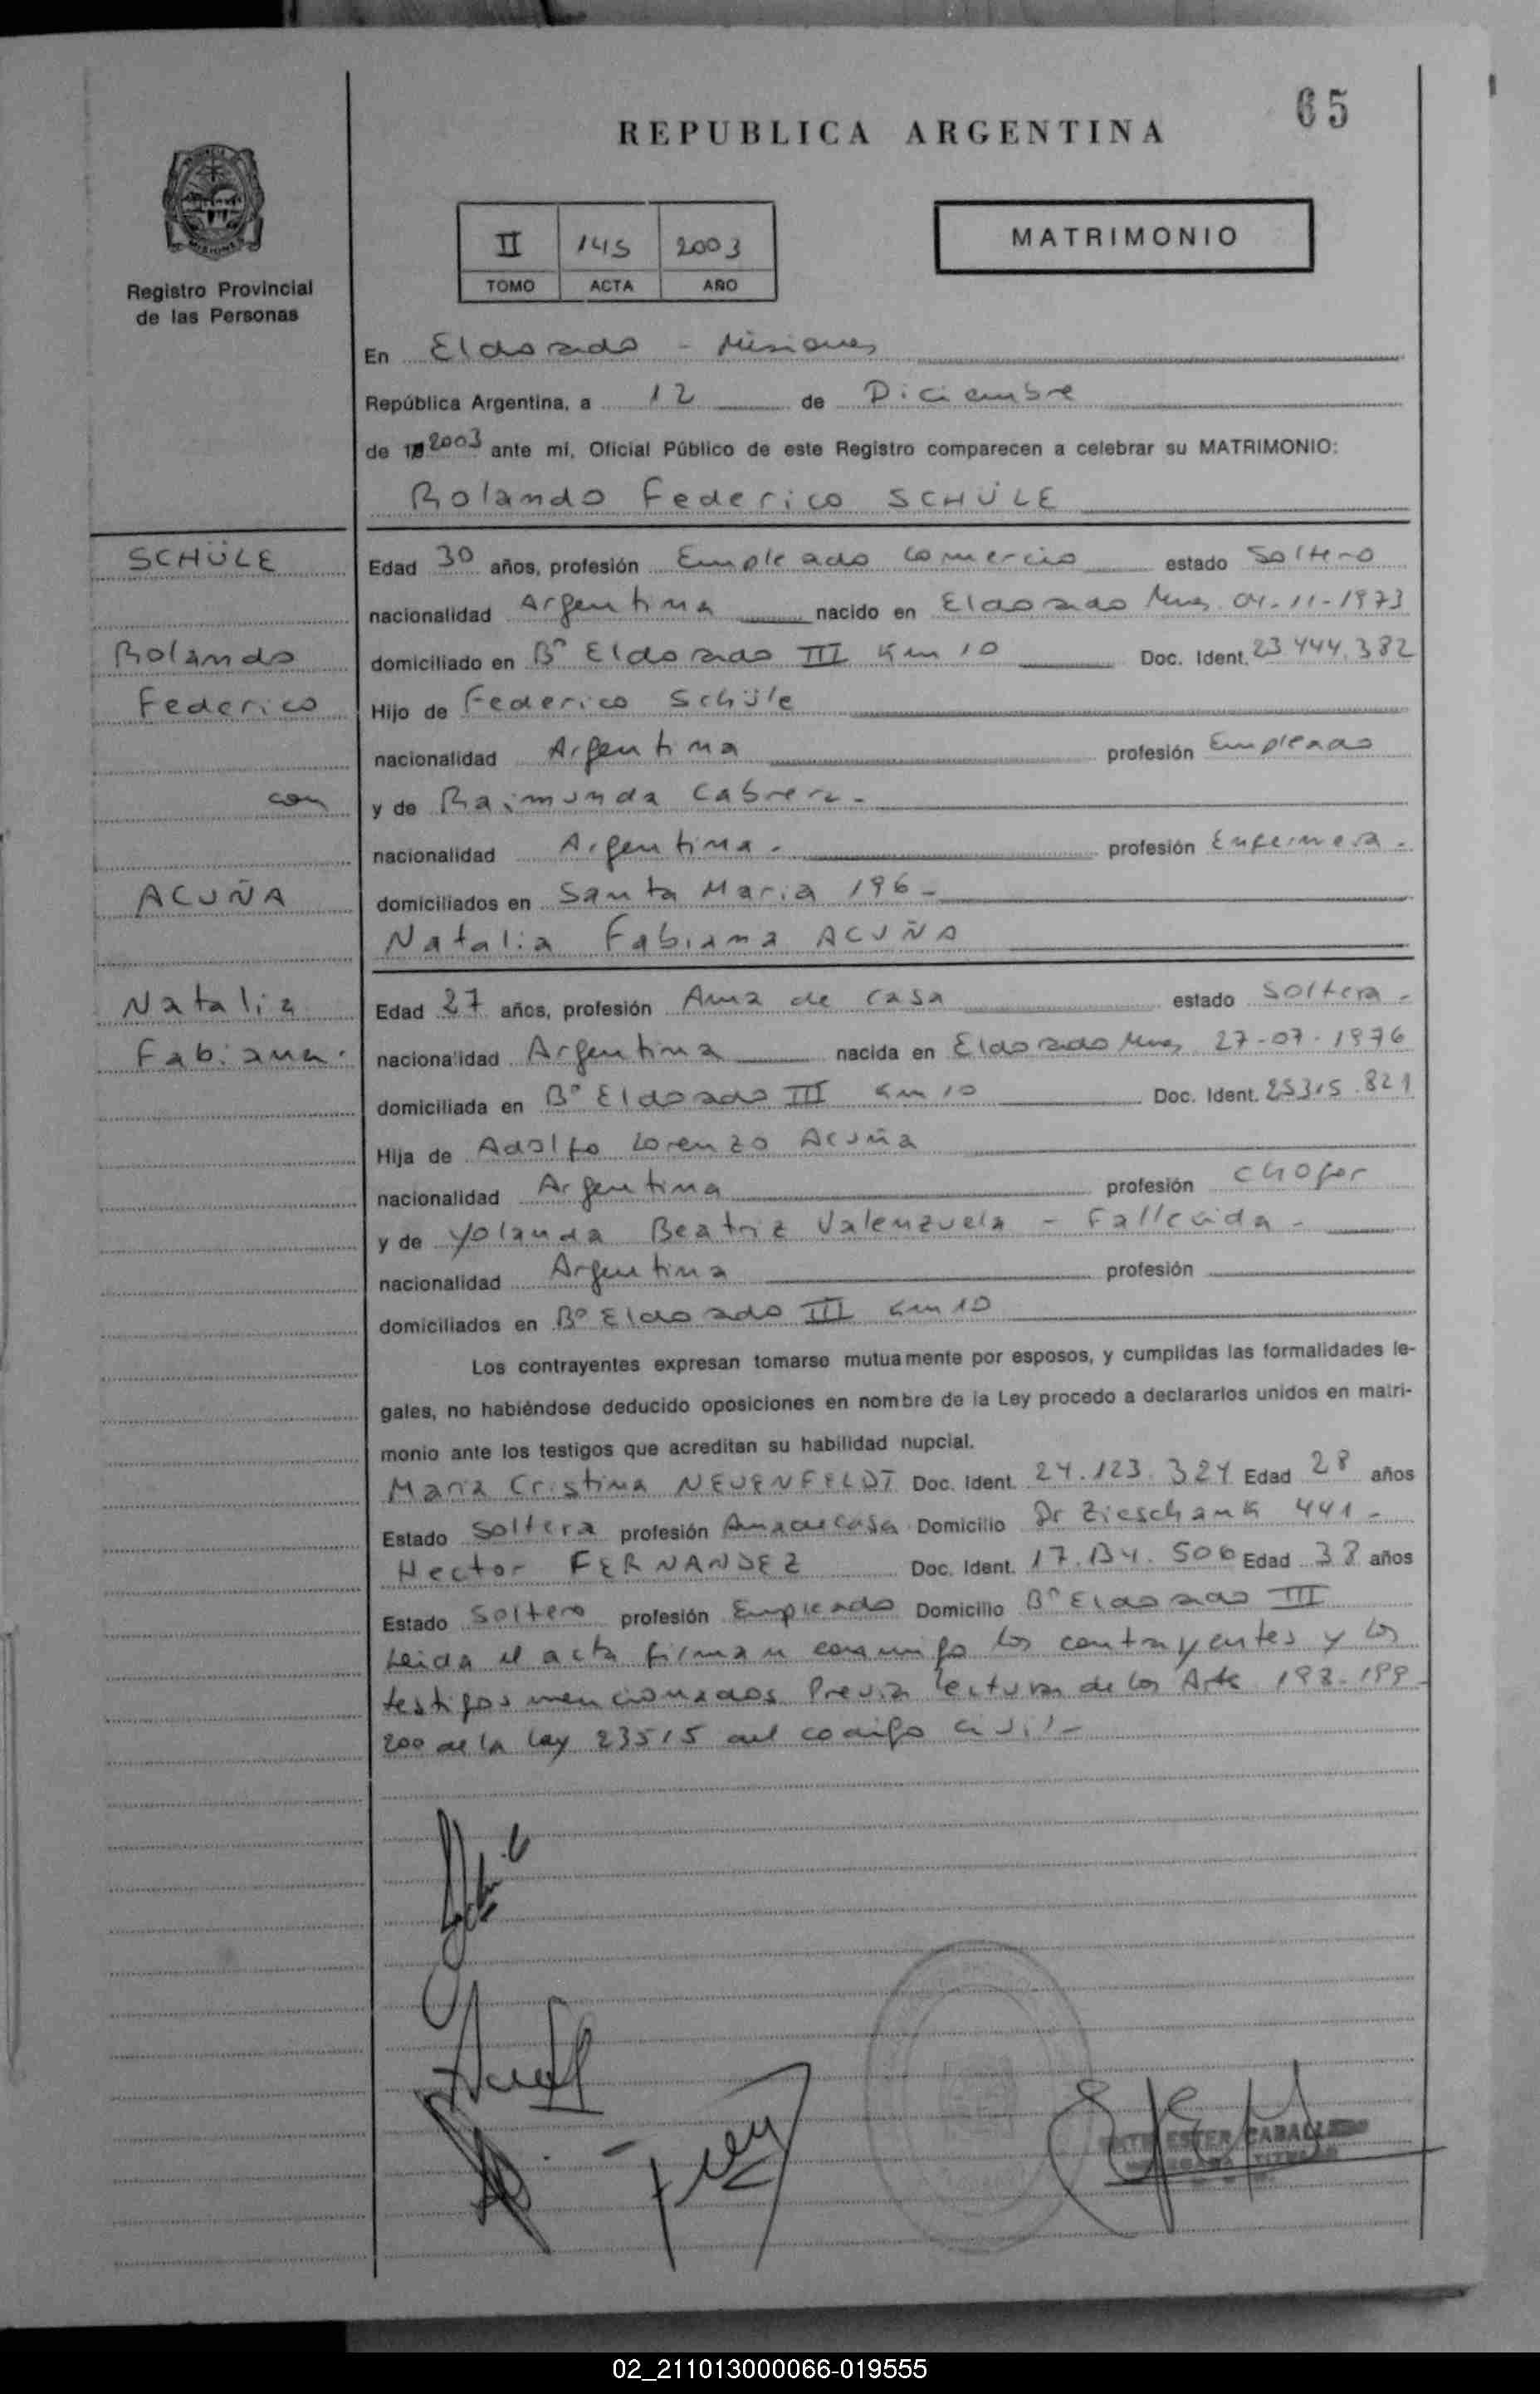 65
REPUBLICA ARGENTINA
II 145 2003
TOMO ACTA AÑO
MATRIMONIO
Registro Provincial
de las Personas
En Eldorado - Misiones
República Argentina, a 12 de Diciembre
de 2003 ante mí, Oficial Público de este Registro comparecen a celebrar su MATRIMONIO:
Rolando Federico SCHÜLE
SCHÜLE
Rolando
Federico
con
ACUÑA
Natalia
Fabiana.
Edad 30 años, profesión Empleado Comercio estado Soltero
nacionalidad Argentina nacido en Eldorado Mnes 04-11-1973
domiciliado en Bº Eldorado III Km 10 Doc. Ident. 23.444.382
Hijo de Federico Schüle
nacionalidad Argentina profesión Empleado
y de Raimunda Cabrera-
nacionalidad Argentina- profesión Enfermera-
domiciliados en Santa Maria 196-
Natalia Fabiana ACUÑA
Edad 27 años, profesión Ama de casa estado Soltera-
nacionalidad Argentina nacida en Eldorado Mnes 27-07-1976
domiciliada en Bº Eldorado III Km 10 Doc. Ident. 25315.821
Hija de Adolfo Lorenzo Acuña
nacionalidad Argentina profesión Chofer
y de Yolanda Beatriz Valenzuela - Fallecida-
nacionalidad Argentina profesión
domiciliados en Bº Eldorado III Km 10
Los contrayentes expresan tomarse mutuamente por esposos, y cumplidas las formalidades le-
gales, no habiéndose deducido oposiciones en nombre de la Ley procedo a declararlos unidos en matri-
monio ante los testigos que acreditan su habilidad nupcial.
Maria Cristina NEUENFELDT Doc. Ident. 24.123.324 Edad 28 años
Estado Soltera profesión Ama de Casa Domicilio Dr Zieschank 441-
Hector FERNANDEZ Doc. Ident. 17.134.506 Edad 38 años
Estado Soltero profesión Empleado Domicilio Bº Eldorado III
Leida el acta firman conmigo los contrayentes y los
testigos mencionados Previa lectura de los Arts 198-199-
200 de la Ley 23515 del codigo civil-
ESTER CABALLERO
TITULAR
02_211013000066-019555